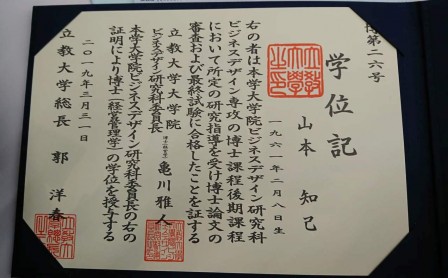 博第二六号
学位記
山本 知己
一九六一年二月八日生
右の者は本学大学院ビジネスデザイン研究科
ビジネスデザイン専攻の博士課程後期課程
において所定の研究指導を受け博士論文の
審査および最終試験に合格したことを証する
立教大学大学院
ビジネスデザイン研究科委員長
亀川雅人
本学大学院ビジネスデザイン研究科委員長の右の
証明により博士(経営管理学)の学位を授与する
二〇一九年三月三一日
立教大学総長 郭 洋春